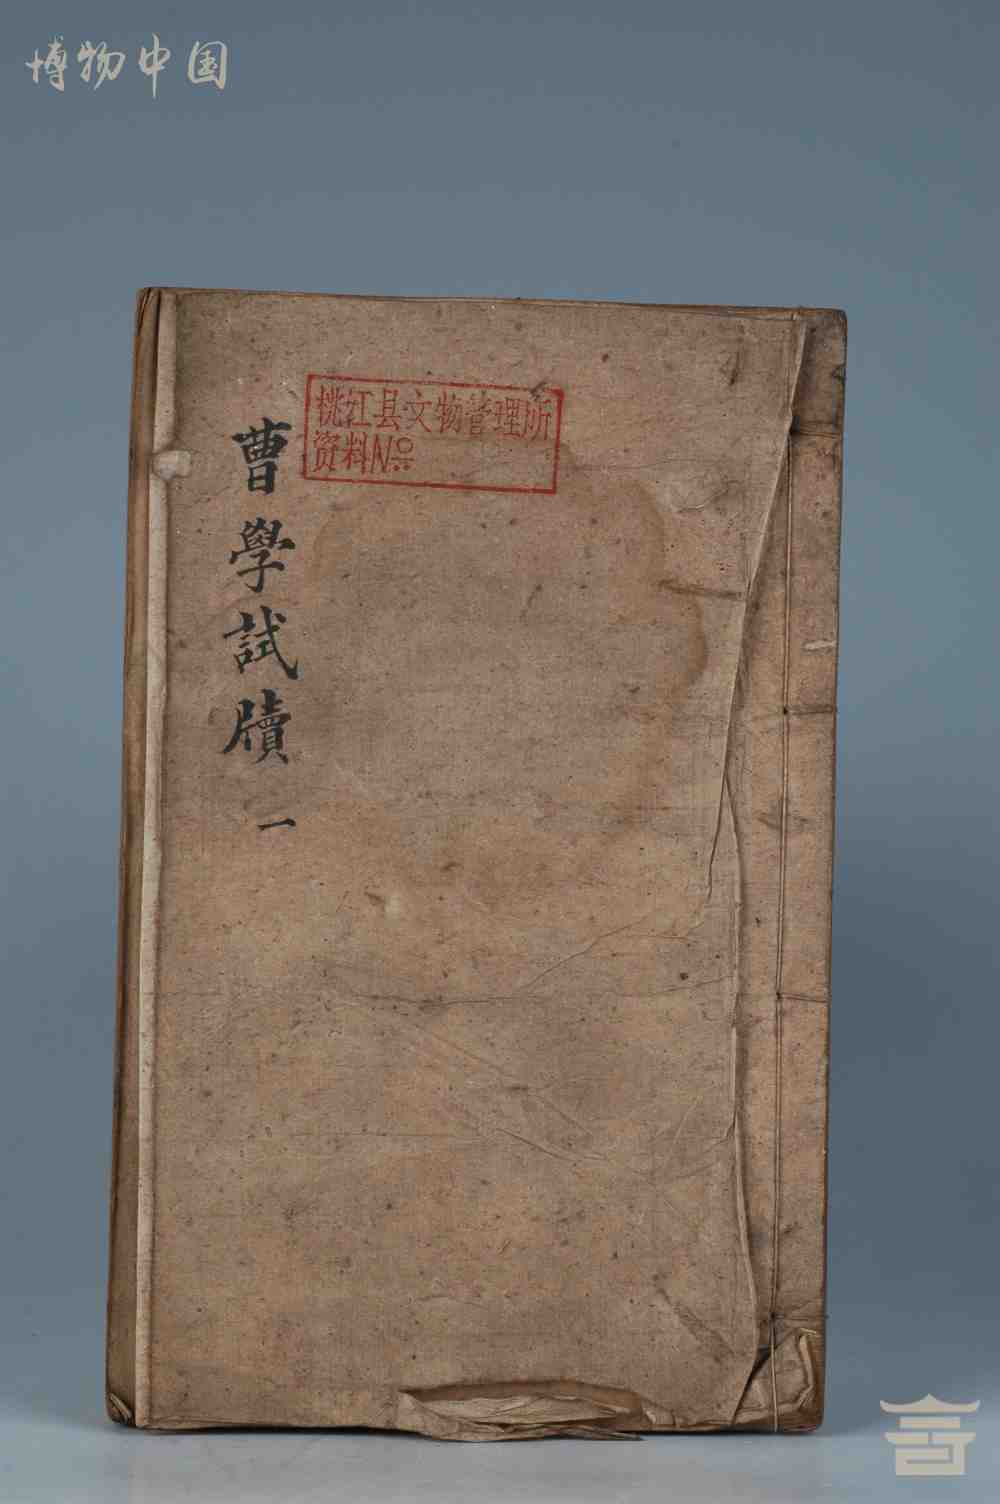 博物中国
桃江县文物管理所
资料No
曹學試牘 一